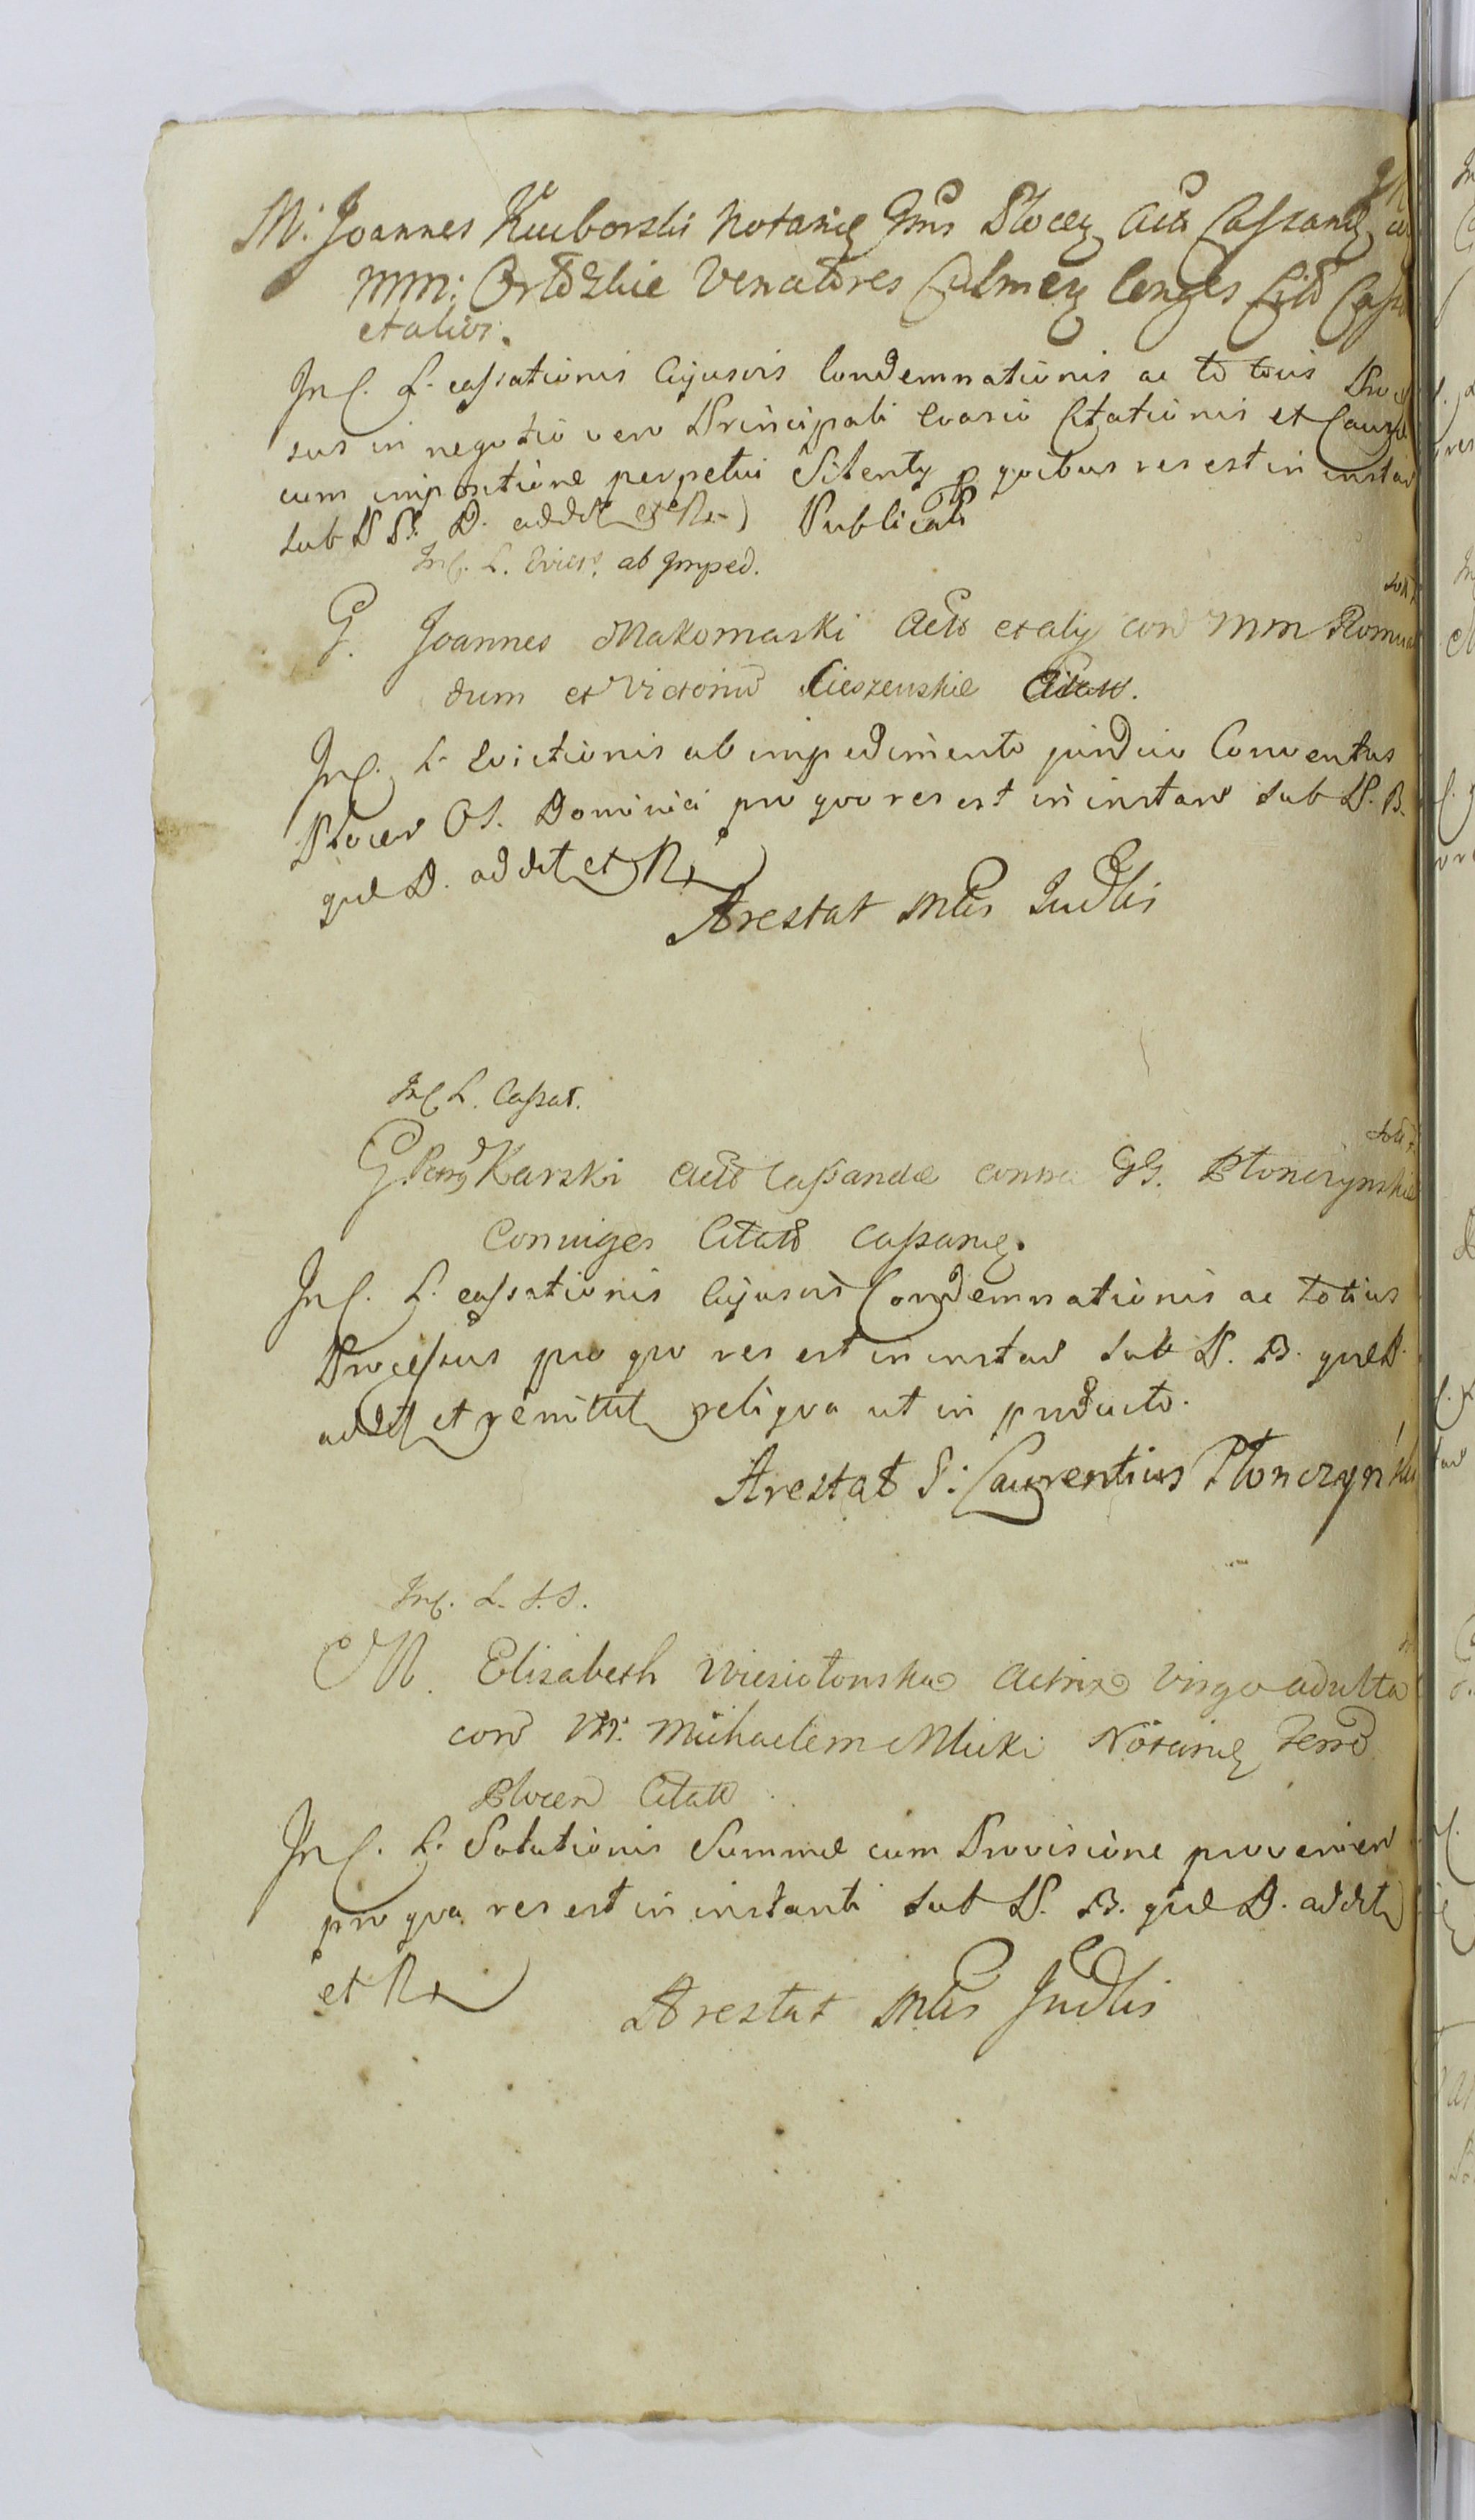 M: Joannes Kuiborski Notariq Gnis Plocen Actr Cassand
MM: Ortoskie Venatores Culmen Conges Citto Cass
et alios.
In C. L. cassationis Cujusvis Condemnationis ac to tius Proces
sus in negotio vero Principali Evasio Citationis et Causae
cum impositione perpetui Silenty p quibus res est in instan
sub P addit et R Publicat
In C. L. Evict. ab Imped.
G. Joannes Makomaski Acto et aliy con MM Romual
dum et Victoriu Cieszenskie Citatt.
In C. L. Evictionis ab impedimento juridico Conventus
Plocen O S. Dominici pro quo res est in instan sub P. B.
que D. addit et R
Arestat Mtis Iudlis
In C L. Cassat.
G. Petrg Karski Acto Cassandae contra GG. Płonczynskie
Conuiges Citato Cassanq.
In C. L. cassationis Cujusvis Condemnationis ac totius
Processus pro quo res est in instan sub P. B. que D.
addit et remittit reliqua ut in producto.
Arestat S: Laurentius Płonczynski
In C. L. S. S.
M. Elisabeth Wiesiołonska Actrix Virgo adulta
con M. Michaelem Mlicki Notariq Terrd
Plocen Citatt
In C. L. Solutionis Summae cum Provisione provenien
pro qva res est in instanti sub P. B. que D. addit
et R
Arestat Mtis Judlis